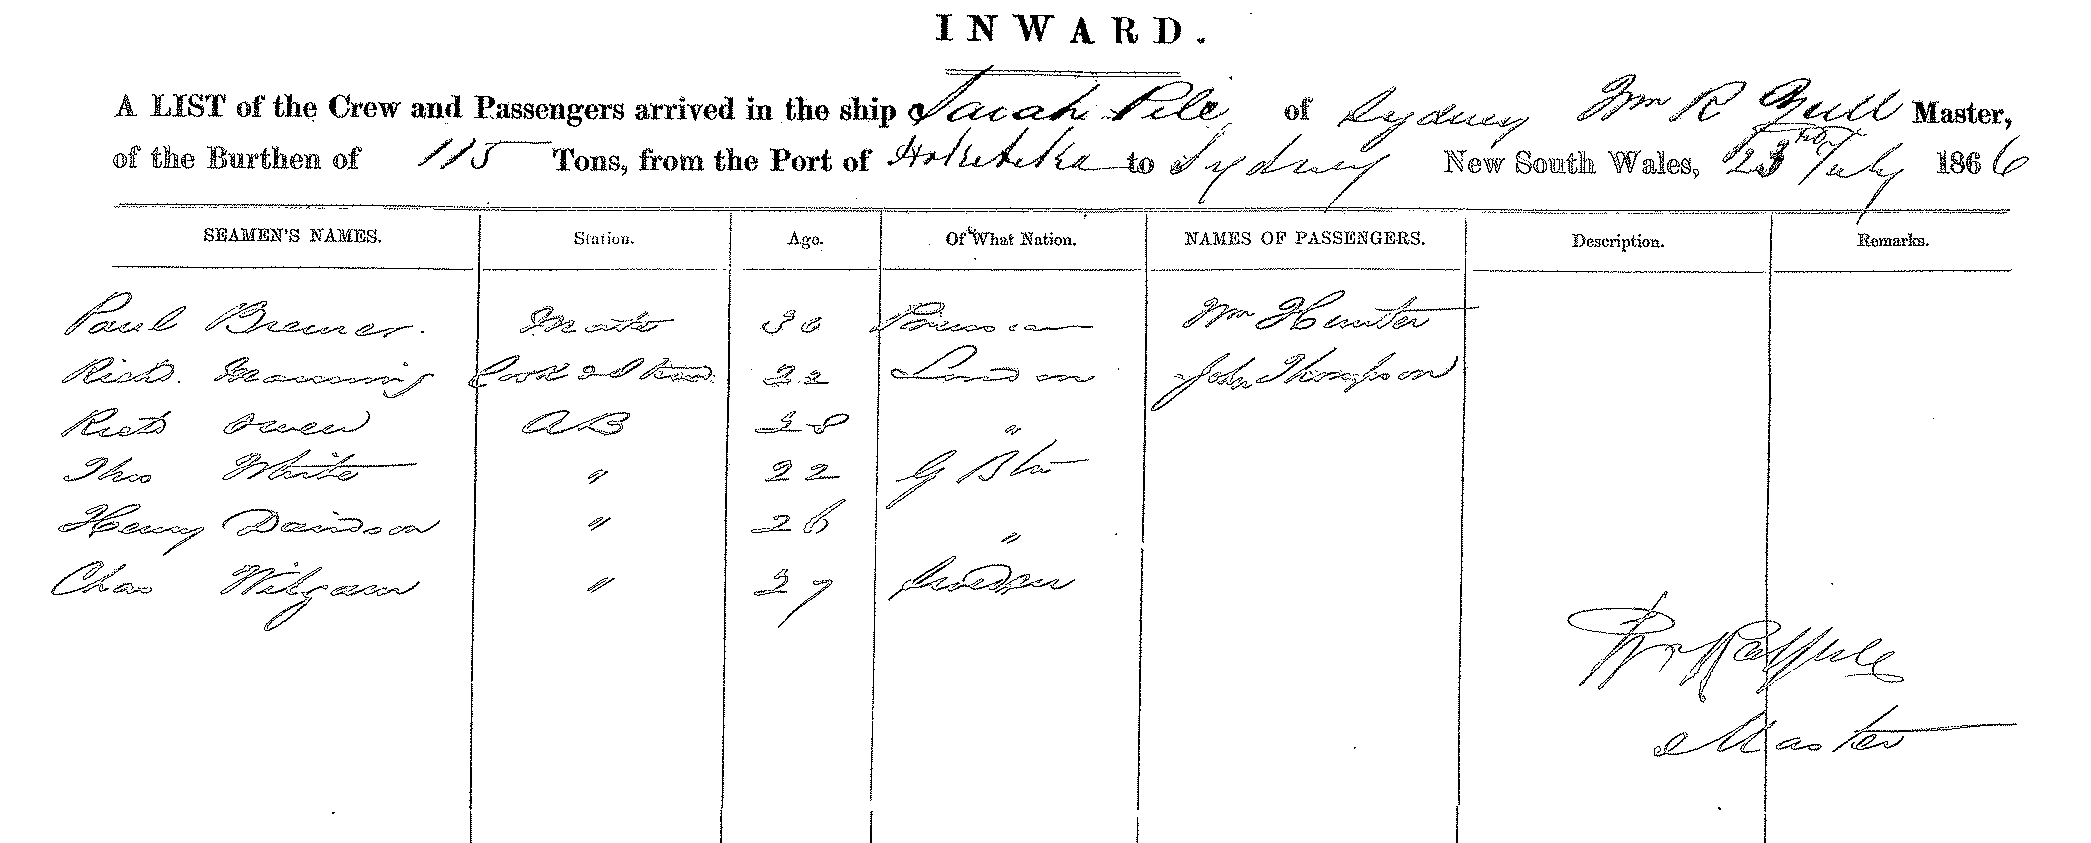 INWARD.
A LIST of the Crew and Passengers arrived in the ship Sarah Pile of Sydney Wm R Master,
of the Burthen of 115 Tons, from the Port of Hokitika to Sydney New South Wales, 23rd July 1866
SEAMEN'S NAMES. Station. Age. Of What Nation. NAMES OF PASSENGERS. Description. Remarks.
Paul Bremer. Mate 30 Prussian Wm Hunter
Richd. Manning Cook & Stewd. 22 London John Thompson
Richd Owen AB 38 "
Thos White " 22 G Btn
Henry Davidson " 26 "
Chas " 27 Sweden
Master